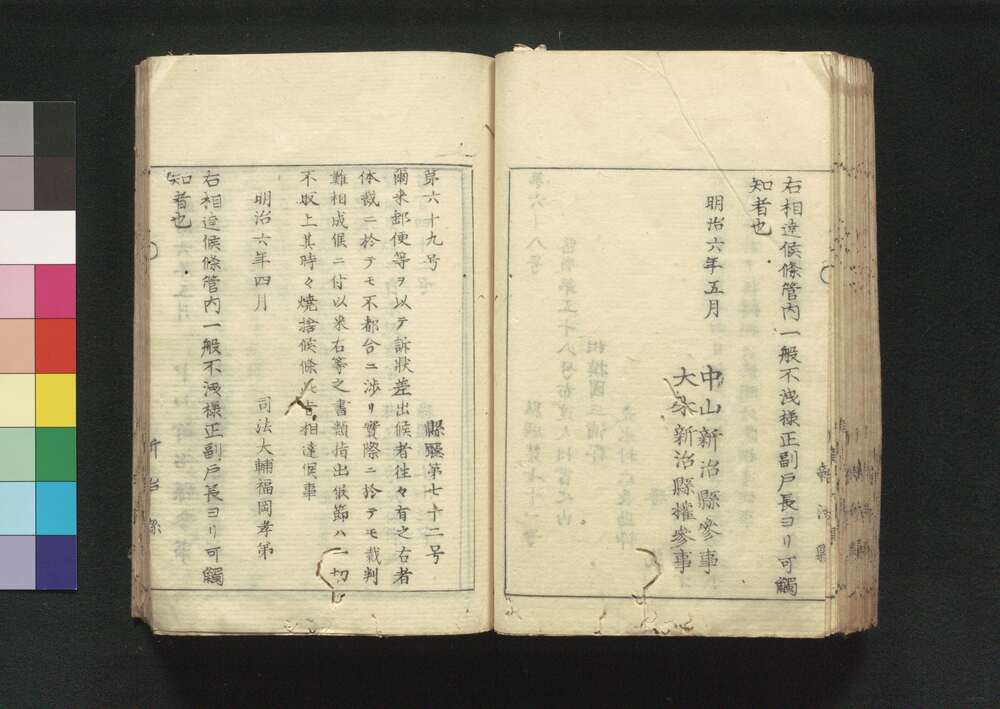 右相達候條管内一般不洩様正副戸長ヨリ可觸
知者也
明治六年五月
中山新治縣參事
大木新治縣權參事
第六十九号
縣廳第七十二号
爾来郵便等ヲ以テ訴状差出候者往々有之右者
体裁ニ於テモ不都合ニ渉リ實際ニ於テモ裁判
難相成候ニ付以来右等之書類指出候節ハ一切
不取上其時々焼捨候條此旨相達候事
明治六年四月
司法大輔福岡孝弟
右相達候條管内一般不洩様正副戸長ヨリ可觸
知者也